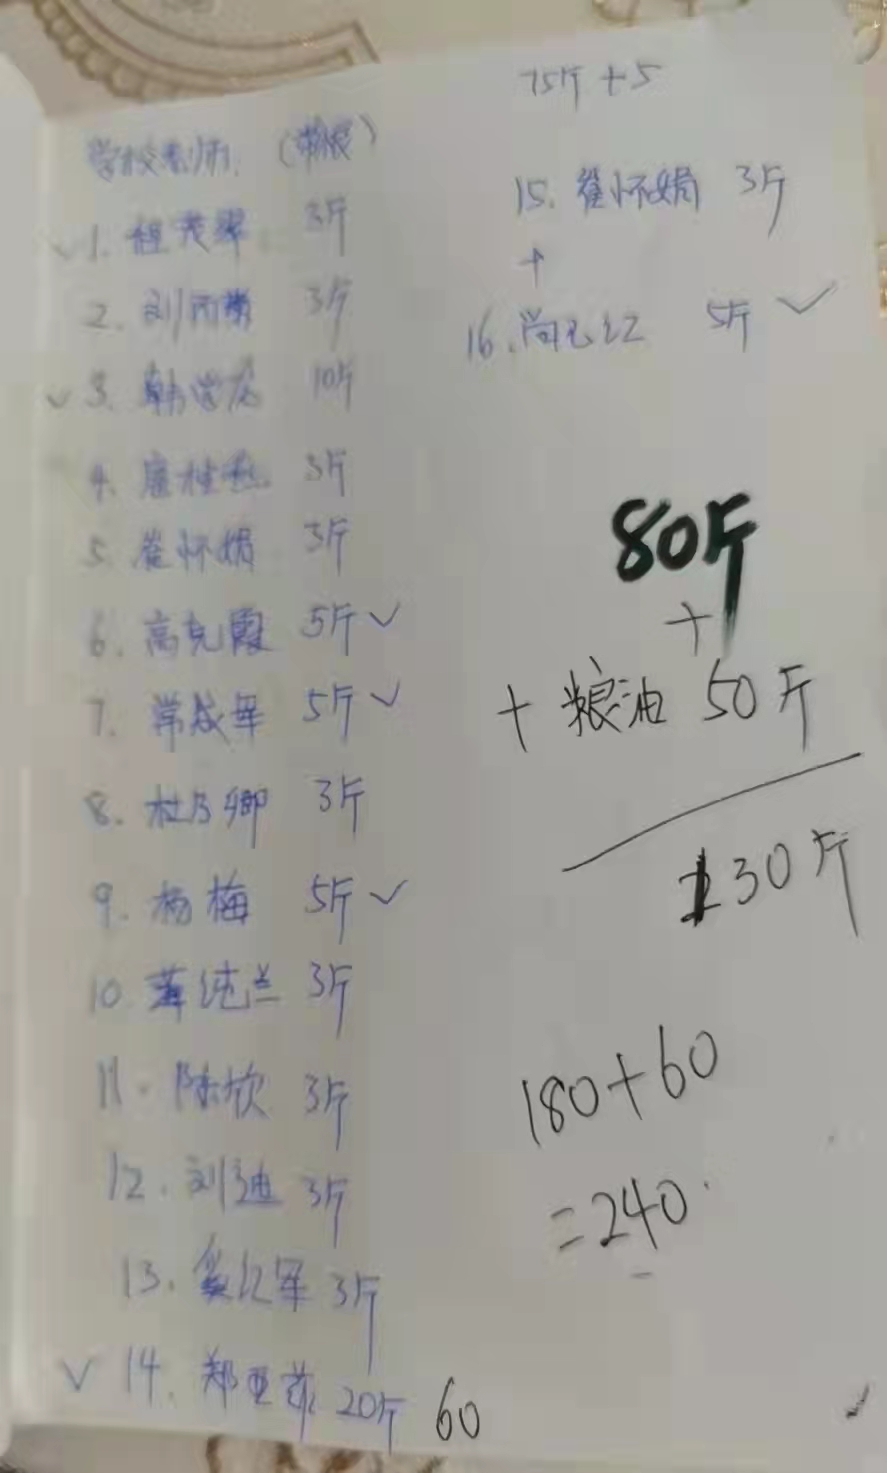 学校老师
✓ 1. 程茂翠 3斤
2. 刘丙菊 3斤
✓ 3. 韩学花 10斤
4. 唐桂 3斤
5. 崔怀娟 3斤
6. 高克霞 5斤 ✓
7. 常成军 5斤 ✓
8. 杜乃卿 3斤
9. 杨梅 5斤 ✓
10 兰 3斤
11. 陈欣 3斤
12. 刘迪 3斤
13. 红军 3斤
✓ 14. 郑亚 20斤 60
75斤+5
15. 崔怀娟 3斤
+
16. 尚 红 5斤 ✓
80斤
+
+ 粮油 50斤
130斤
180+60
=240